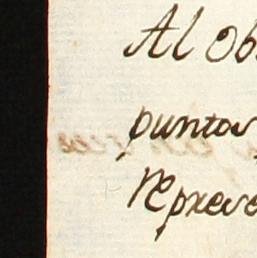 Al Ob
puntos
Represe